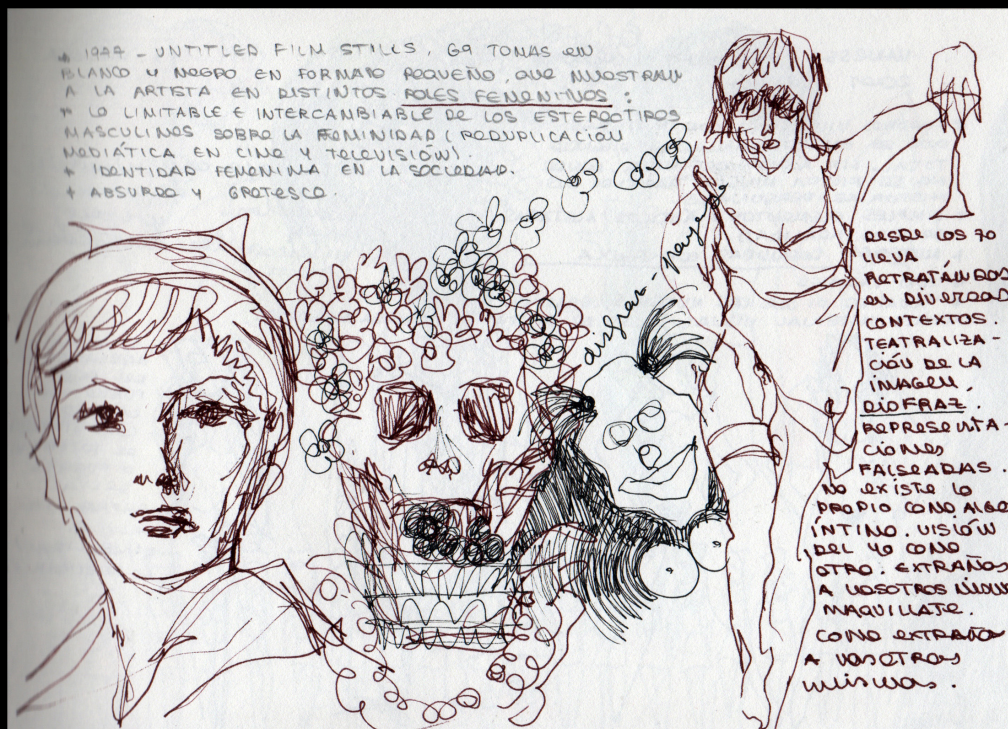 * 1977 - UNTITLED FILM STILLS. 69 TOMAS EN
BLANCO Y NEGRO EN FORMATO PEQUEÑO, QUE MUESTRAN
A LA ARTISTA EN DISTINTOS ROLES FEMENINOS :
* LO LIMITABLE E INTERCAMBIABLE DE LOS ESTEREOTIPOS
MASCULINOS SOBRE LA FEMINIDAD (REDUPLICACIÓN
MEDIÁTICA EN CINE Y TELEVISIÓN).
* IDENTIDAD FEMENINA EN LA SOCIEDAD.
* ABSURDO Y GROTESCO.
disfraz
DESDE LOS 70
LLEVA
RETRATÁNDOSE
EN DIVERSOS
CONTEXTOS.
TEATRALIZA-
CIÓN DE LA
IMAGEN.
DISFRAZ.
REPRESENTA-
CIONES
FALSEADAS.
NO EXISTE LO
PROPIO COMO ALGO
ÍNTIMO. VISIÓN
DEL YO COMO
OTRO. EXTRAÑOS
A VOSOTROS
MAQUILLATE.
COMO EXTRAÑOS
A VOSOTROS
mismos.